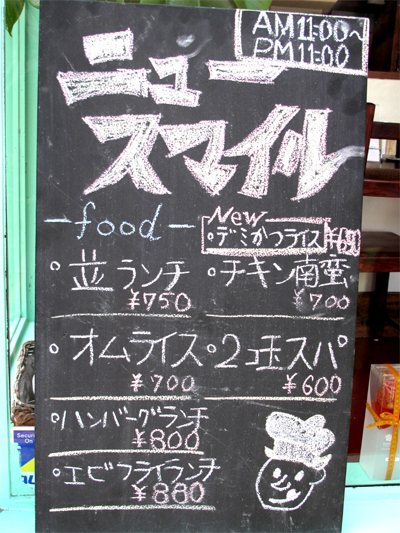 AM11:00〜
PM11:00
ニュー
スマイル
-food-
New
・デミかつライス
・並ランチ
¥750
・チキン南蛮
¥700
・オムライス
¥700
・2玉スパ
¥600
・ハンバーグランチ
¥800
・エビフライランチ
¥880